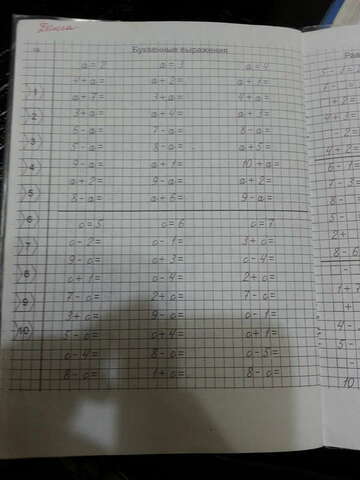 Буквенные выражения
а=2 а=3 а=4
4+а= а+2= а+1=
а+7= 3+а= 4+а=
3+а= а+4= а+3=
6-а= 7-а= 8-а=
5-а= 8-а= а+5=
9-а= а+1= 10+а=
а+2= 9-а= а+2=
8-а= а+6= 9-а=
а=5 а=6 а=7
а-2= а-1= 3+а=
9-а= а+3= а-4=
а+1= а-4= 2+а=
7-а= 2+а= 7-а=
3+а= 9-а= а-1=
5-а= а+4= а+1=
а-4= 8-а= а-5=
8-а= 1+а= 8-а=
1
2
3
4
5
6
7
8
9
10